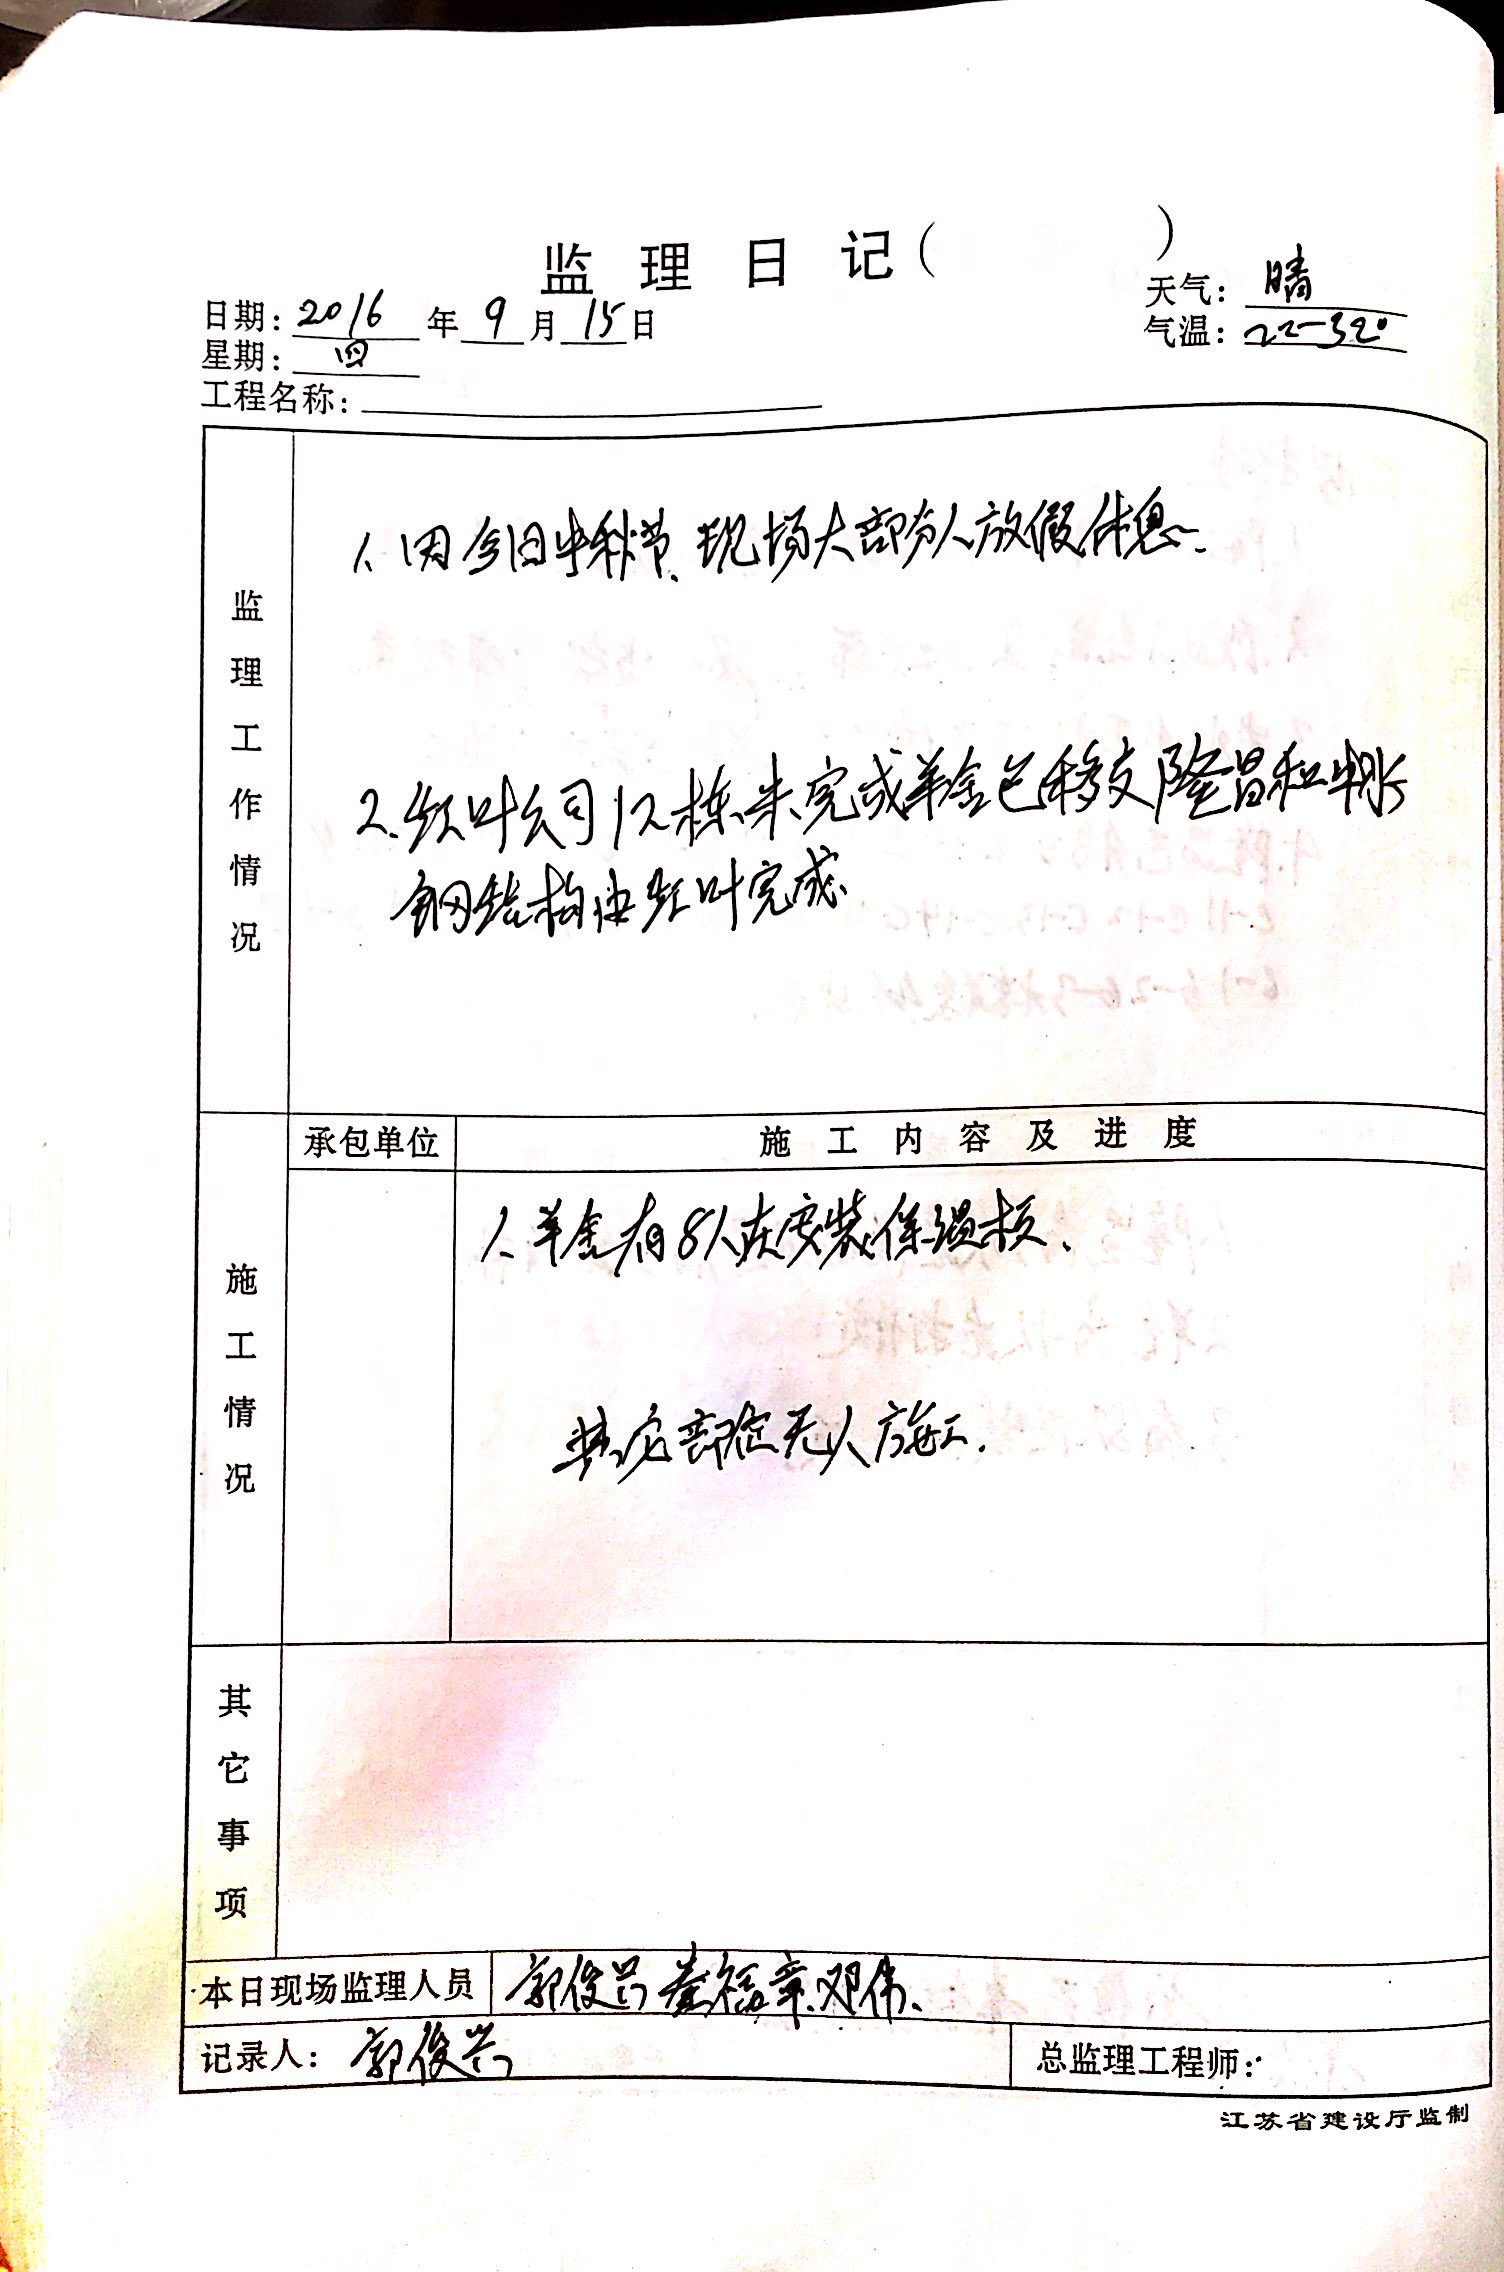 监理日记( )
日期: 2016 年 9 月 15 日
天气: 晴
星期: 四
气温: 22-32°
工程名称:
监理工作情况
1、因今日中秋节、现场大部分人放假休息、
2、红叶公司12栋未完成羊金已移交隆昌和
钢结构由红叶完成、
承包单位 施工内容及进度
施工情况
1、羊金有8人在安装保温板、
其它部位无人施工、
其它事项
本日现场监理人员 郭俊兴 秦福章、邓伟、
记录人: 郭俊兴 总监理工程师:
江苏省建设厅监制